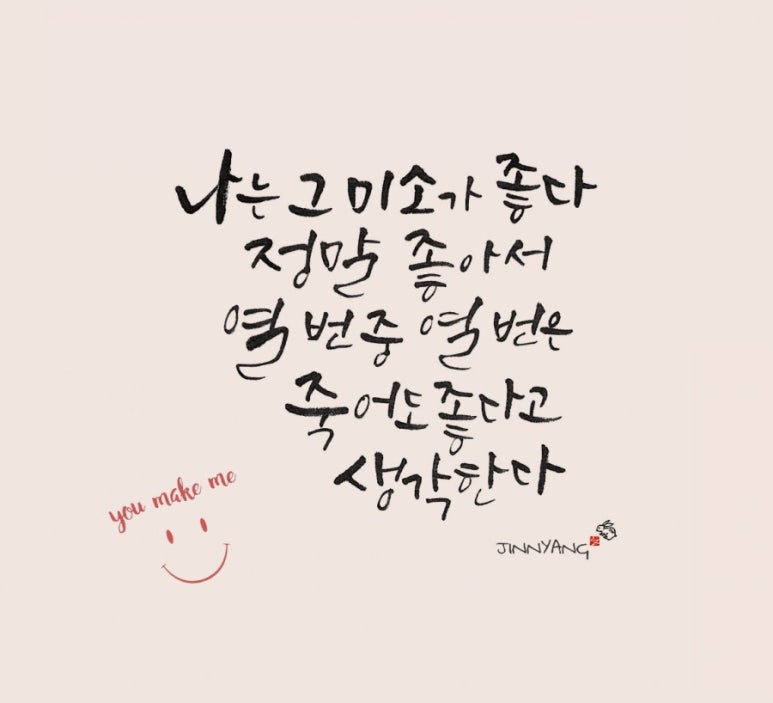 나는 그 미소가 좋다
정말 좋아서
열 번 중 열 번은
죽어도 좋다고
생각한다
you make me
JINNYANG